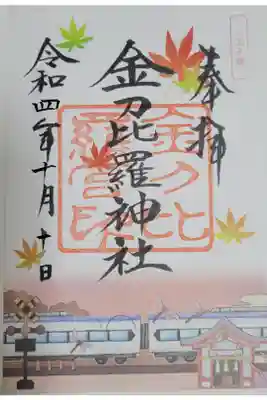 奉拝
金刀比羅神社
令和四年十月十日